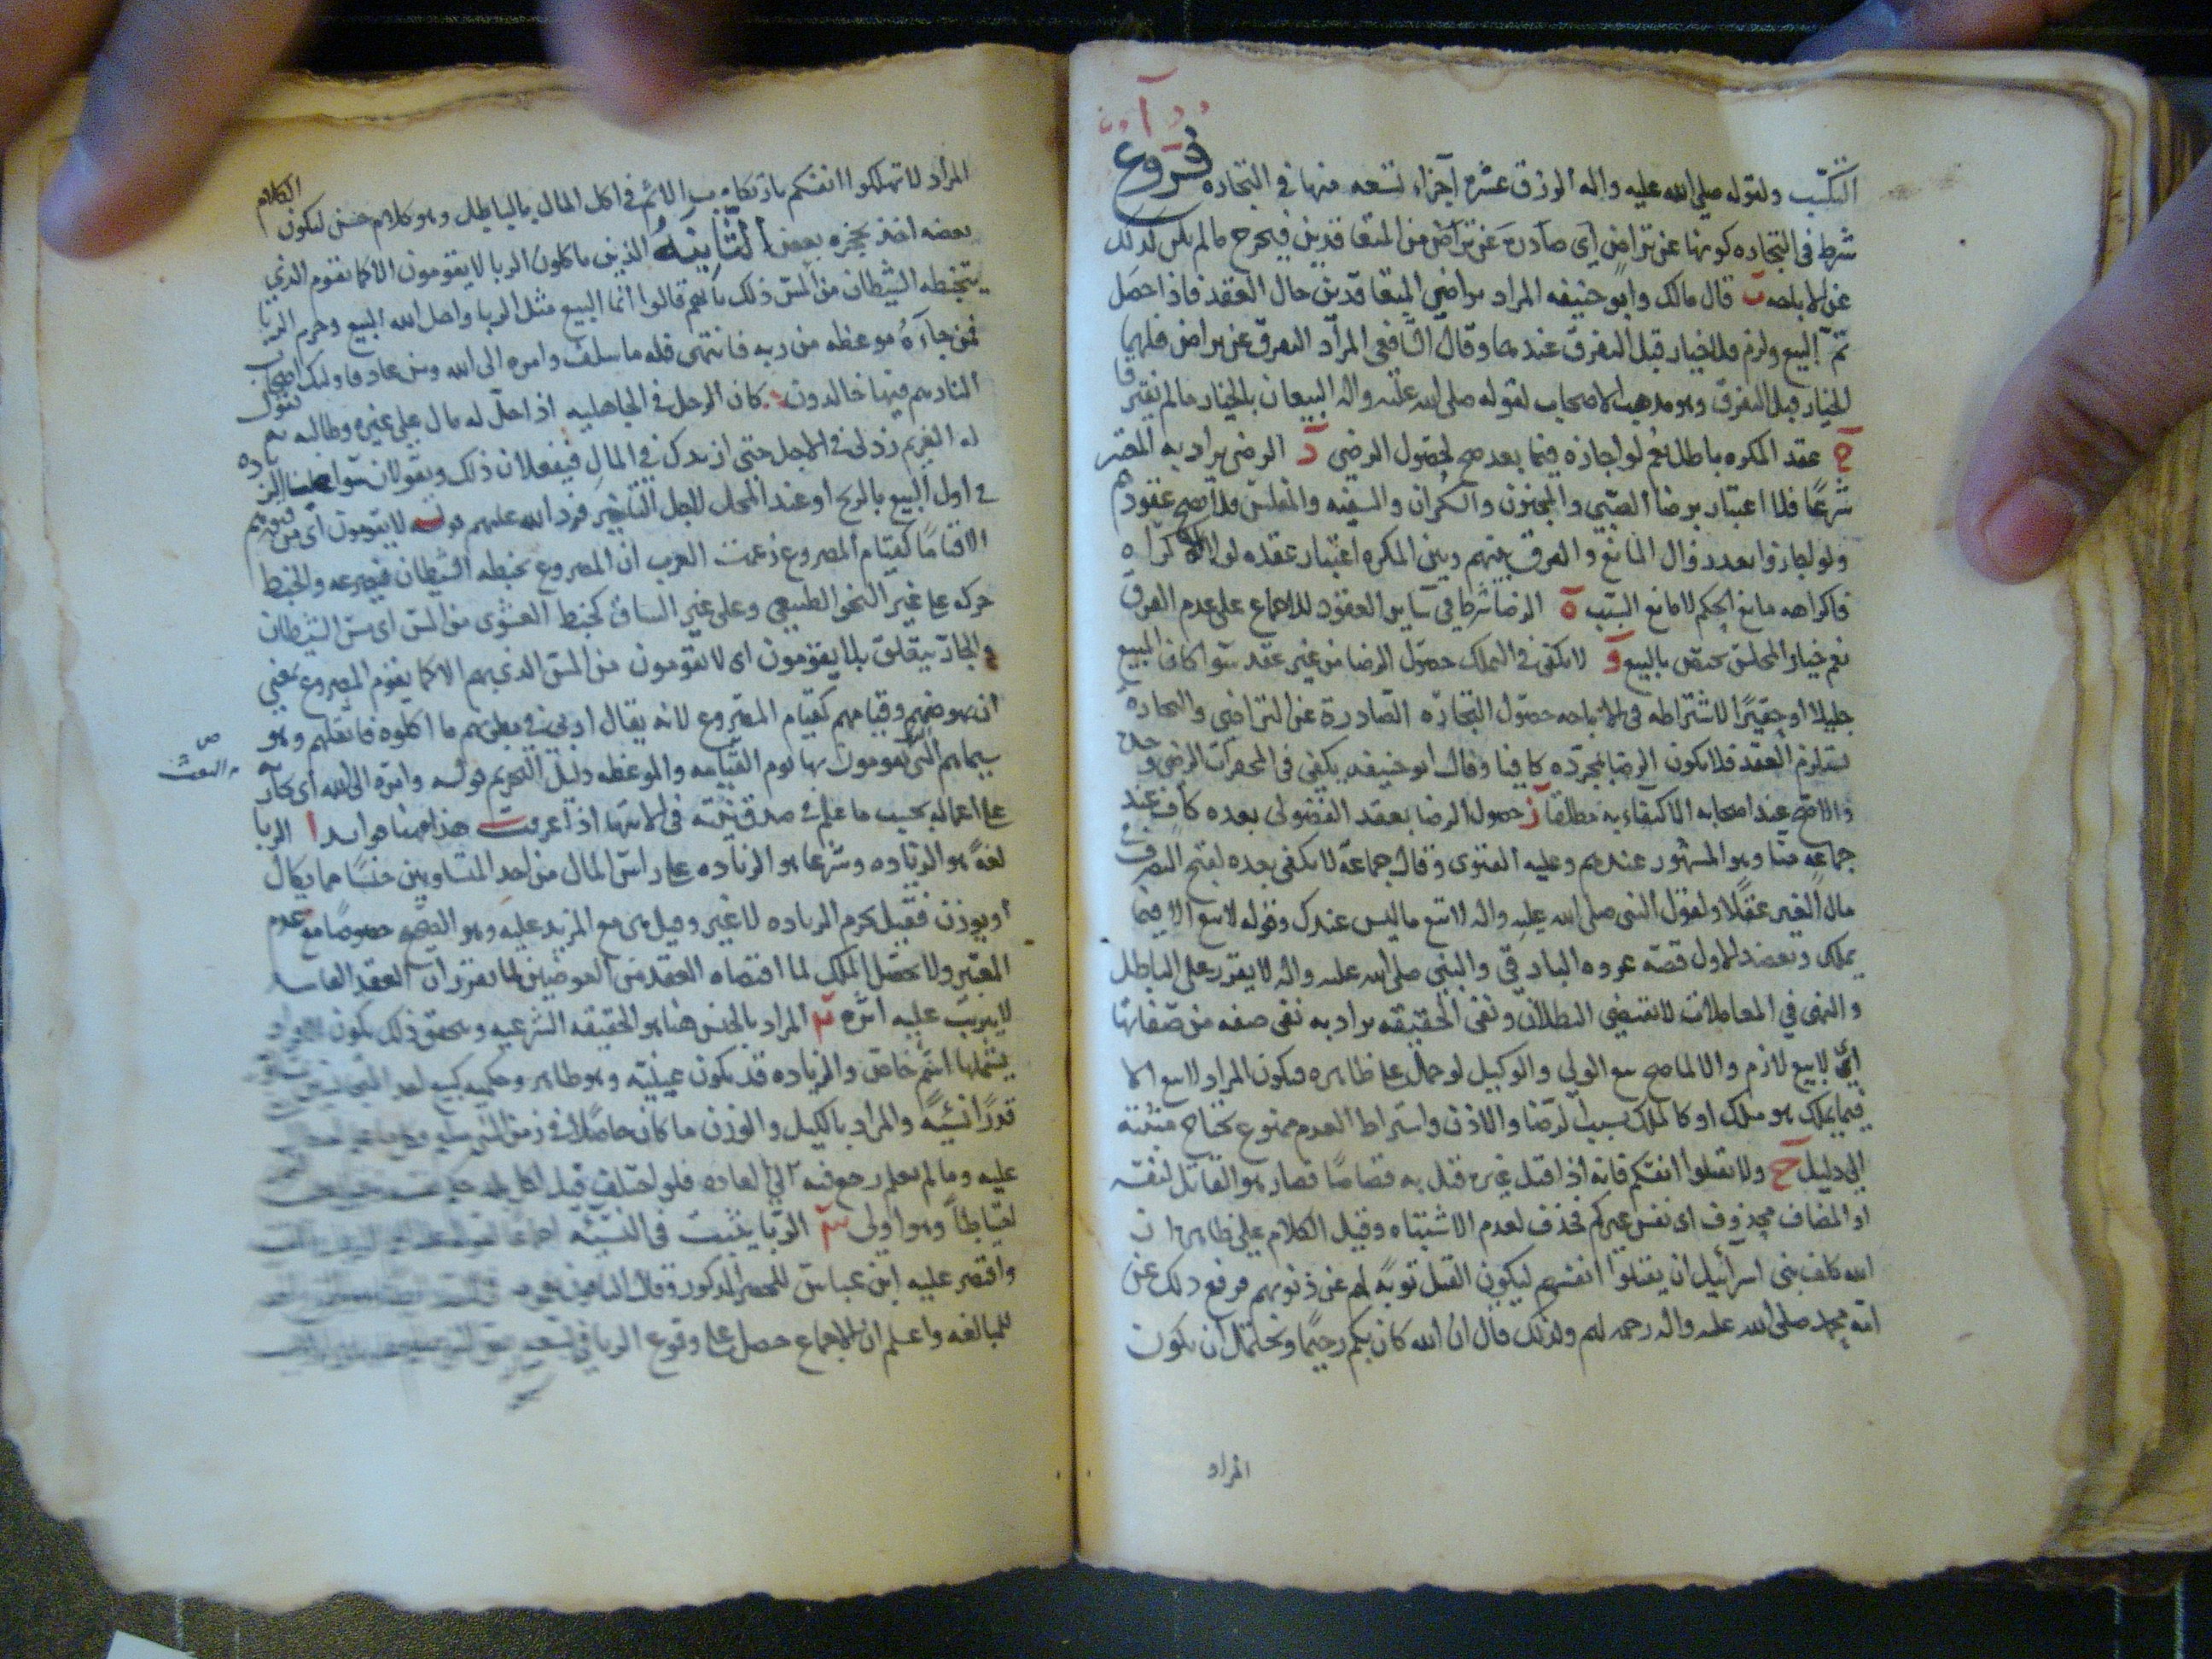 التكسّب ولقوله صلى الله عليه واله الرزق عشرة اجزاء تسعه منها في التجاره فروع آ
شرط في التجاره كونها عن تراض اي صادرة عن تراض من المتعاقدين فيخرج مالم يكن كذلك
عن الاباحه ب قال مالك وابو حنيفه المراد تراضي المتعاقدين حال العقد فاذا حصل
تمّ البيع ولزم فلا خيار قبل التفرق عندهما وقال الشافعي المراد التفرق عن تراض فلهما
الخيار قبل التفرق وهو مذهب الاصحاب لقوله صلى الله عليه واله البيعان بالخيار مالم يفترقا
ج عقد المكره باطل نعم لو اجازه فيما بعد صح لحصول الرضى د الرضى يراد به المعتبر
شرعًا فلا اعتبار برضا الصبّي والمجنون والسكران والسفيه والمفلس فلا تصح عقودهم
ولو اجازوا بعد زوال المانع والفرق بينهم وبين المكره اعتبار عقده لولا الاكراه
فاكراهه مانع الحكم لا مانع السبب ه الرضا شرط في ساير العقود للاجماع على عدم الفرق
نعم خيار المجلس مختص بالبيع و لا يكفي في التملك حصول الرضا من غير عقد سوا كان المبيع
جليلا او حقيرًا لاشتراطه في الاباحه حصول التجاره الصادرة عن التراضي والتجاره
تستلزم العقد فلا يكون الرضا بمجرّده كافيا وقال ابو حنيفه يكفي في المحقرات الرضى وحده
والاصح عند اصحابه الاكتفاء به مطلقا ز حصول الرضا بعقد الفضولى بعده كاف عند
جماعة منّا وهو المشهور عندهم وعليه الفتوى وقال جماعة لا يكفي بعده لقبح التصرف في
مال الغير عقلًا ولقول النبي صلى الله عليه واله لا تبع ما ليس عندك وقوله لا بيع الا فيما
يملك ويعضد الاول قصة عروه البارقي والنبي صلى الله عليه واله لا يقرر على الباطل
والنهى في المعاملات لا تقتضي البطلان ونفي الحقيقه يراد به نفي صفه من صفاتها
اي لا بيع لازم والا لما صح بيع الولي والوكيل لو حمل على ظاهره فيكون المراد لا بيع الا
فيما يملك هو ملك او كالملك بسبب الرضا والاذن واشتراط العدم ممنوع يحتاج مثبته
الى دليل ح ولا تقتلوا انفسكم فانه اذا قتل غيره قتل به قصاصًا فصار هو القاتل لنفسه
او المضاف محذوف اى نفس غيركم فحذف لعدم الاشتباه وقيل الكلام على ظاهره ان
الله كلف بني اسرائيل ان يقتلوا انفسهم ليكون القتل توبة لهم عن ذنوبهم فرفع ذلك عن
امة محمد صلى الله عليه واله رحمه لهم ولذلك قال ان الله كان بكم رحيمًا ويحتمل ان يكون
المراد
المراد لا تهلكوا انفسكم بارتكاب الاثم في اكل المال بالباطل وهو كلام حسن ليكون الكلام
بعضه اخذ بحجزه بعض الثّانيةُ الذين ياكلون الربا لا يقومون الا كما يقوم الذي
يتخبطه الشيطان من المسّ ذلك بانهم قالوا انما البيع مثل الربا واحل الله البيع وحرم الربا
فمن جاءَهُ موعظه من ربه فانتهى فله ما سلف وامره الى الله ومن عاد فاولئك اصحاب
النار هم فيها خالدون كان الرجل في الجاهليه اذا حلّ له مال على غيره وطالبه به يقول
له الغريم زدلى في الاجل حتى ازيدك في المال فيفعلان ذلك ويقولان سوا علينا الزياده
في اول البيع بالربح او عند المحل لاجل التاخير فرد الله عليهم قوله لا يقومون اى من قبورهم
الا قيامًا كقيام المصروع زعمت العرب ان المصروع يخبطه الشيطان فيصرعه والخبط
حركه على غير النحو الطبيعي وعلى غير اتساق كخبط العشوى من المس اى مس الشيطان
والجارّ يتعلق بلا يقومون اى لا يقومون من المس الذى بهم الا كما يقوم المصروع يعني
ان نهوضهم وقيامهم كقيام المصروع لانه يقال اربى في بطونهم ما اكلوه فاثقلهم وهو
سيماهم التي يقومون بها يوم القيامه والموعظه دليل التحريم قوله وامره الى الله اى يجازيه
على اعماله بحسب ما علم في صدق نيّته في الانتها اذا عرفت هذا فهنا فوايد ا الربا
لغةً هو الزياده وشرعا هو الزياده على راس المال من احد المتساويين جنسًا مما يكال
أو يوزن فقيل يحرم الزياده لا غير وقيل هى مع المزيد عليه وهو الصحيح خصوصًا مع عدم
المعتبر ولا يحصل الملك لما اقتضاه العقد من العوضين لما تقرر ان العقد الفاسد
لا يترتب عليه اثره المراد بالجنس هنا هو الحقيقه الشرعيه ويتحقق ذلك بكون الافراد
يشملها اسم خاص والزياده قد يكون عينيّه وهو ظاهر وحكميه كبيع احد
قدرًا نسيئة والمراد بالكيل والوزن ما كان حاصلًا في زمن النبي
عليه وما لم يعلم رجع فيه الى العاده فلو اختلف قيل لكل بلد حكم
احتياطًا وهو اولى الربا يثبت في النسيئه
واقتصر عليه ابن عباس للحصر المذكور وقال الباقون
للمبالغه واعلم ان الاجماع حصل على وقوع الربا في